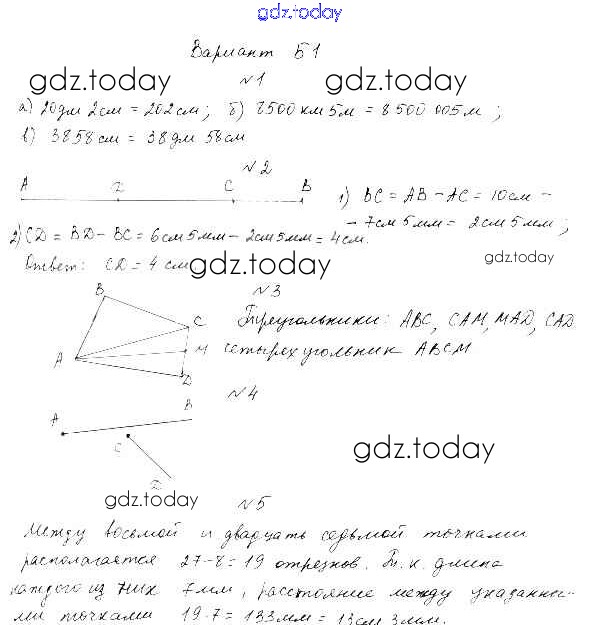 gdz.today
Вариант Б1
gdz.today gdz.today
№1
а) 20дм 2см = 202см; б) 8500км 5м = 8 500 005м;
в) 3858см = 38дм 58см
№2
A D C B
1) BC = AB - AC = 10см -
- 7см 5мм = 2см 5мм;
2) CD = BD - BC = 6см 5мм - 2см 5мм = 4см.
Ответ: CD = 4 см
gdz.today gdz.today
№3
B C A M D
Треугольники: ABC, CAM, MAD, CAD
четырехугольник ABCM
№4
A B
C
D
gdz.today
gdz.today
№5
Между восьмой и двадцать седьмой точками
располагается 27-8=19 отрезков. Т.к. длина
каждого из них 7мм, расстояние между указанны-
ми точками 19·7 = 133мм = 13см 3мм.